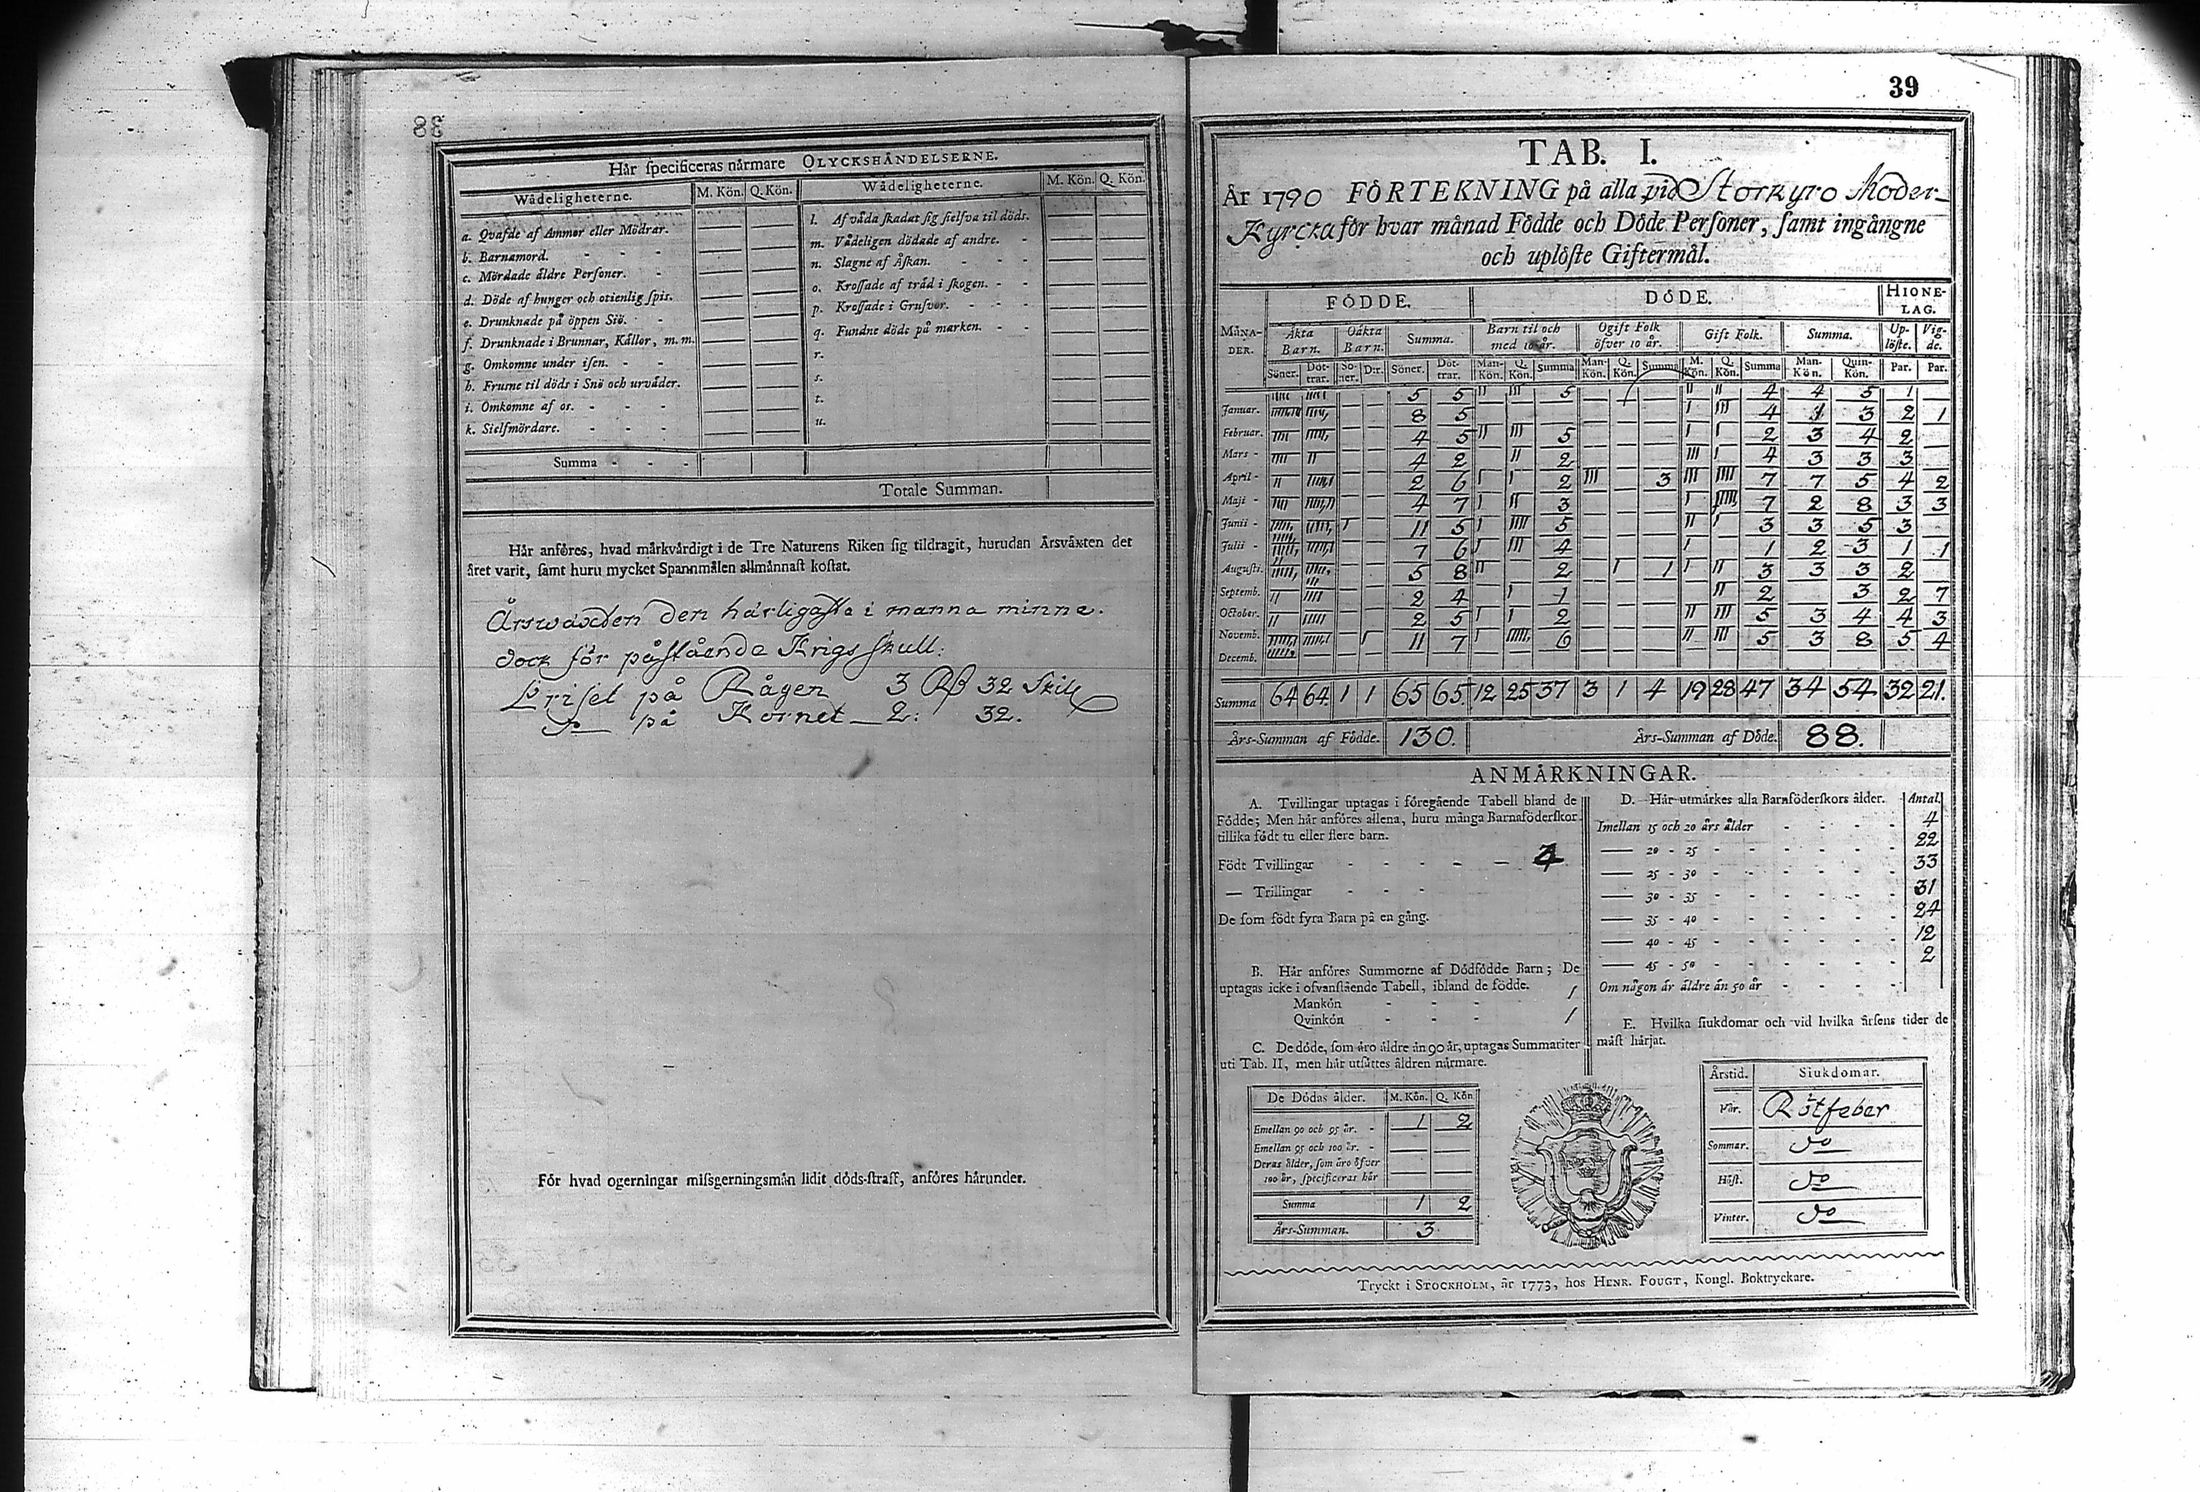 38
Här specificeras närmare OLYCKSHÄNDELSERNE.
Wådeligheterne. M. Kön. Q. Kön. Wådeligheterne. M. Kön. Q. Kön.
a. Qvafde af Ammor eller Mödrar.
b. Barnamord.
c. Mördade äldre Personer.
d. Döde af hunger och otienlig spis.
e. Drunknade på öppen Siö.
f. Drunknade i Brunnar, Källor, m. m.
g. Omkomne under isen.
h. Frusne til döds i Snö och urväder.
i. Omkomne af os.
k. Sielfmördare.
l. Af våda skadat sig sielfva til döds.
m. Vådeligen dödade af andre.
n. Slagne af Åskan.
o. Krossade af träd i skogen.
p. Krossade i Grufvor.
q. Fundne döde på marken.
r.
s.
t.
u.
Summa
Totale Summan.
Här anföres, hvad märkvärdigt i de Tre Naturens Riken sig tildragit, hurudan Årsväxten det
året varit, samt huru mycket Spannmålen allmännast kostat.
Årswäxten den härligaste i manna minne.
dock för påstående Krigs skull:
Priset på Rågen 3 R 32 Skill
D:o på Kornet 2: 32.
För hvad ogerningar missgerningsmän lidit döds-straff, anföres härunder.
39
TAB. I.
År 1790 FÖRTEKNING på alla vid Storkyro Moder-
Kyrcka för hvar månad Födde och Döde Personer, samt ingångne
och uplöste Giftermål.
MÅNADER. FÖDDE. DÖDE. HIONELAG.
Äkta Barn. Oäkta Barn. Summa. Barn til och med 10 år. Ogift Folk öfver 10 år. Gift Folk. Summa. Uplöste. Vigde.
Söner. Döttrar. Söner. D:r. Söner. Döttrar. Man-Kön. Q. Kön. Summa Man-Kön. Q. Kön. Summa M. Kön. Q. Kön. Summa Man-Kön. Quin-Kön. Par. Par.
Januar. 5 5 5 4 4 5 1
Februar. 8 5 4 1 3 2 1
Mars 4 5 5 2 3 4 2
April 4 2 2 4 3 3 3
Maji 2 6 2 3 7 7 5 4 2
Junii 4 7 3 7 2 8 3 3
Julii 11 5 5 3 3 5 3
Augusti. 7 6 4 1 2 3 1 1
Septemb. 5 8 2 1 3 3 3 2
October. 2 4 1 2 3 2 7
Novemb. 2 5 2 5 3 4 4 3
Decemb. 11 7 6 5 3 8 5 4
Summa 64 64 1 1 65 65 12 25 37 3 1 4 19 28 47 34 54 32 21.
Års-Summan af Födde. 130. Års-Summan af Döde. 88.
ANMÄRKNINGAR.
A. Tvillingar uptagas i föregående Tabell bland de
Födde; Men här anföres allena, huru många Barnaföderskor
tillika födt tu eller flere barn.
Födt Tvillingar
— Trillingar
De som födt fyra Barn på en gång.
B. Här anföres Summorne af Dödfödde Barn; De
uptagas icke i ofvanstående Tabell, ibland de födde.
Mankön 1
Qvinkön 1
C. De döde, som äro äldre än 90 år, uptagas Summariter
uti Tab. II, men här utsättes åldren närmare.
De Dödas ålder. M. Kön. Q. Kön
Emellan 90 och 95 år. 1 2
Emellan 95 och 100 år.
Deras ålder, som äro öfver
100 år, specificeras här
Summa 1 2
Års-Summan. 3
D. Här utmärkes alla Barnföderskors ålder. Antal.
Imellan 15 och 20 års ålder 4
20 - 25 22
25 - 30 33
30 - 35 31
35 - 40 24
40 - 45 12
45 - 50 2
Om någon är äldre än 50 år
E. Hvilka siukdomar och vid hvilka årsens tider de
mäst härjat.
Årstid. Siukdomar.
Vår. Rötfeber
Sommar. D:o
Höst. D:o
Vinter. D:o
Tryckt i STOCKHOLM, år 1773, hos HENR. FOUGT, Kongl. Boktryckare.